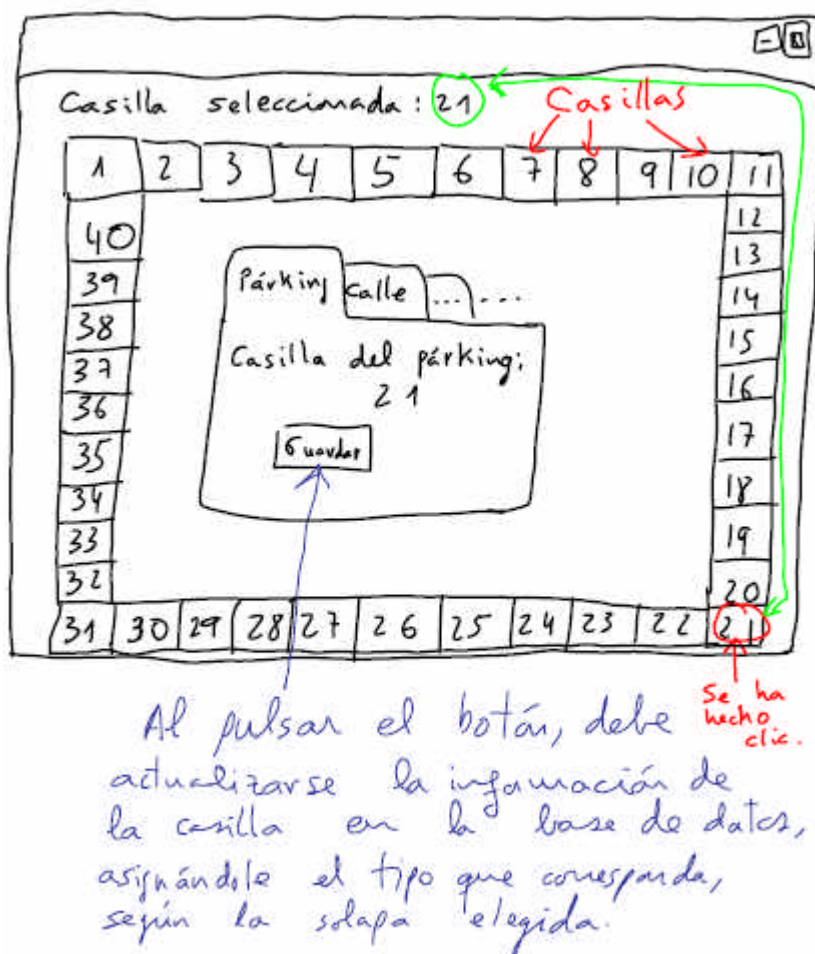 Casilla seleccionada: 21
Casillas
1 2 3 4 5 6 7 8 9 10 11
40 12
39 13
38 14
37 15
36 16
35 17
34 18
33 19
32 20
31 30 29 28 27 26 25 24 23 22 21
Párking Calle ... ...
Casilla del párking:
21
Guardar
Se ha
hecho
clic.
Al pulsar el botón, debe
actualizarse la información de
la casilla en la base de datos,
asignándole el tipo que corresponda,
según la solapa elegida.